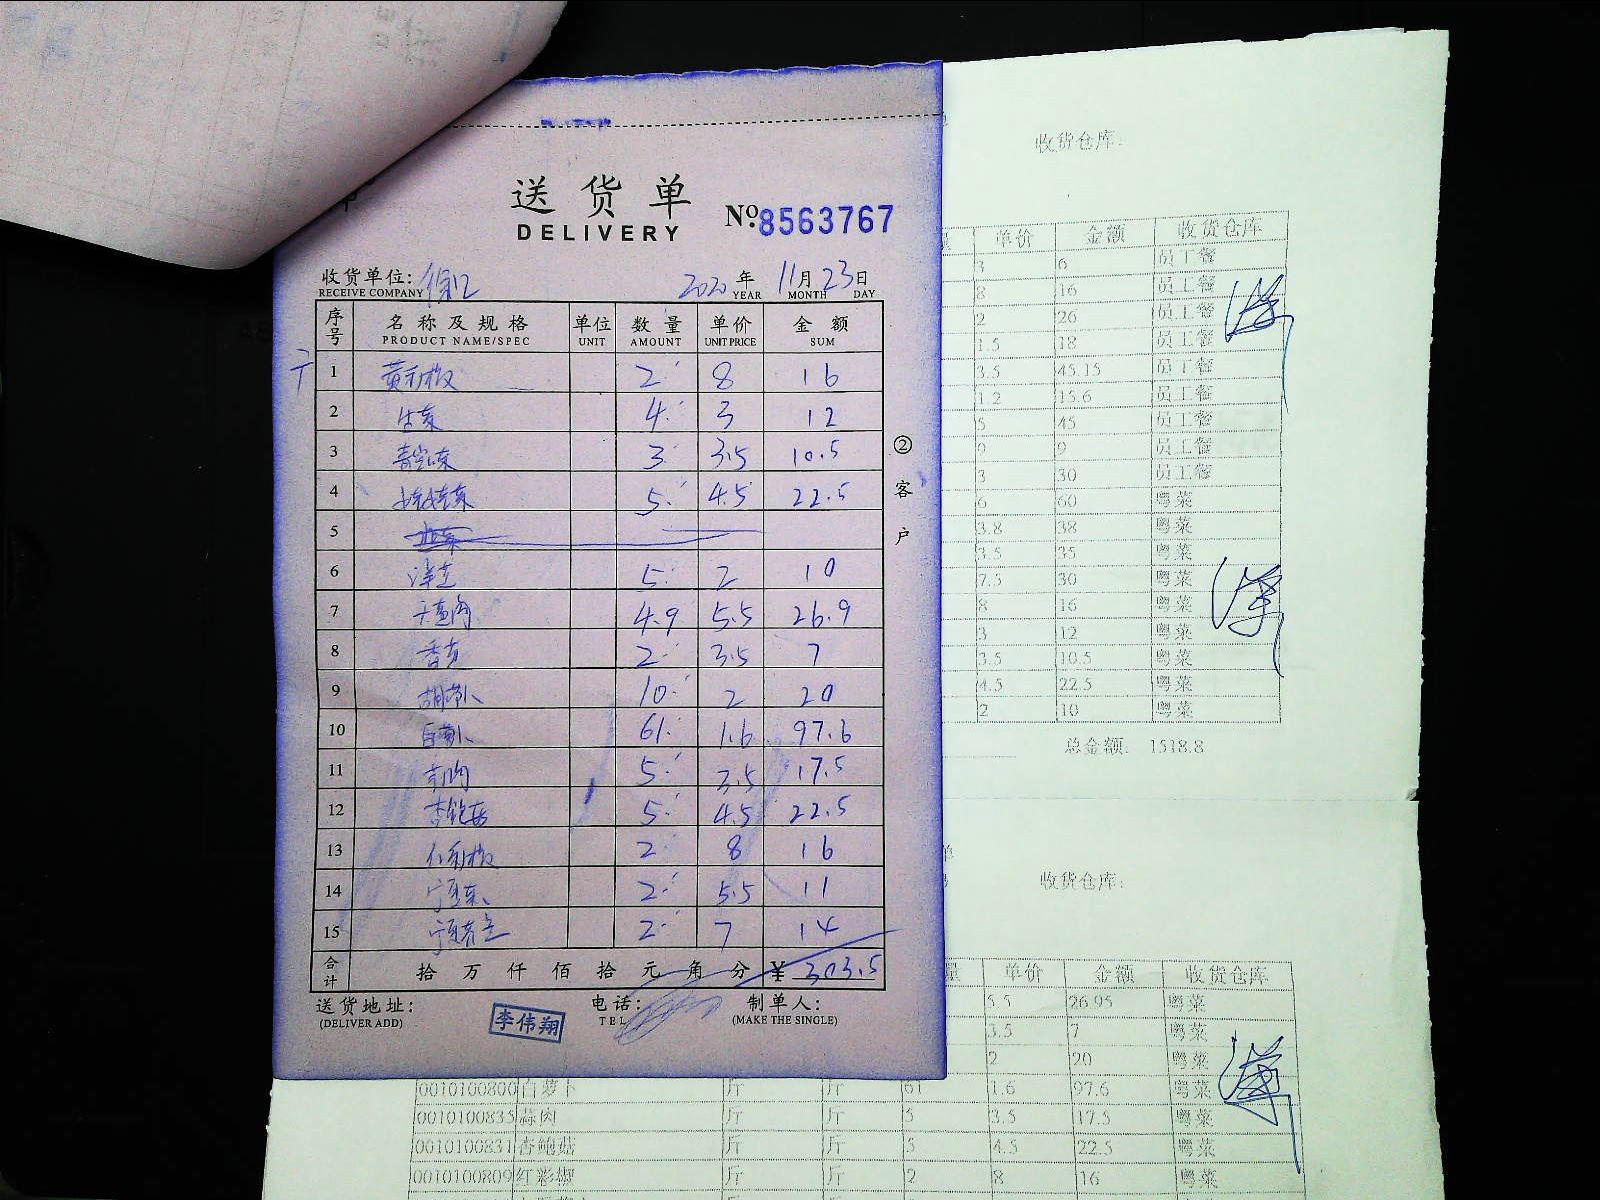 送货单
DELIVERY
Nº 8563767
收货单位:
RECEIVE COMPANY
2020年 11月 23日
YEAR MONTH DAY
序号 名称及规格 单位 数量 单价 金额
PRODUCT NAME/SPEC UNIT AMOUNT UNIT PRICE SUM
1 黄彩椒 2 8 16
2 生菜 4 3 12
3 3 3.5 10.5
4 5 4.5 22.5
5
6 洋芋 5 2 10
7 4.9 5.5 26.9
8 香芹 2 3.5 7
9 胡萝卜 10 2 20
10 白萝卜 61 1.6 97.6
11 蒜肉 5 3.5 17.5
12 杏鲍菇 5 4.5 22.5
13 红彩椒 2 8 16
14 2 5.5 11
15 2 7 14
合计 拾万仟佰拾元角分 ¥ 303.5
送货地址: 电话: 制单人:
(DELIVER ADD) TEL (MAKE THE SINGLE)
李伟翔
②客户
收货仓库:
单价 金额 收货仓库
3 6 员工餐
8 16 员工餐
2 26 员工餐
1.5 18 员工餐
3.5 45.15 员工餐
1.2 15.6 员工餐
5 45 员工餐
9 9 员工餐
3 30 员工餐
6 60 粤菜
3.8 38 粤菜
3.5 35 粤菜
7.5 30 粤菜
8 16 粤菜
3 12 粤菜
3.5 10.5 粤菜
4.5 22.5 粤菜
2 10 粤菜
总金额: 1518.8
收货仓库:
单价 金额 收货仓库
5.5 26.95 粤菜
3.5 7 粤菜
2 20 粤菜
0010100800 白萝卜 斤 斤 61 1.6 97.6 粤菜
0010100835 蒜肉 斤 斤 5 3.5 17.5 粤菜
0010100831 杏鲍菇 斤 斤 5 4.5 22.5 粤菜
0010100809 红彩椒 斤 斤 2 8 16 粤菜